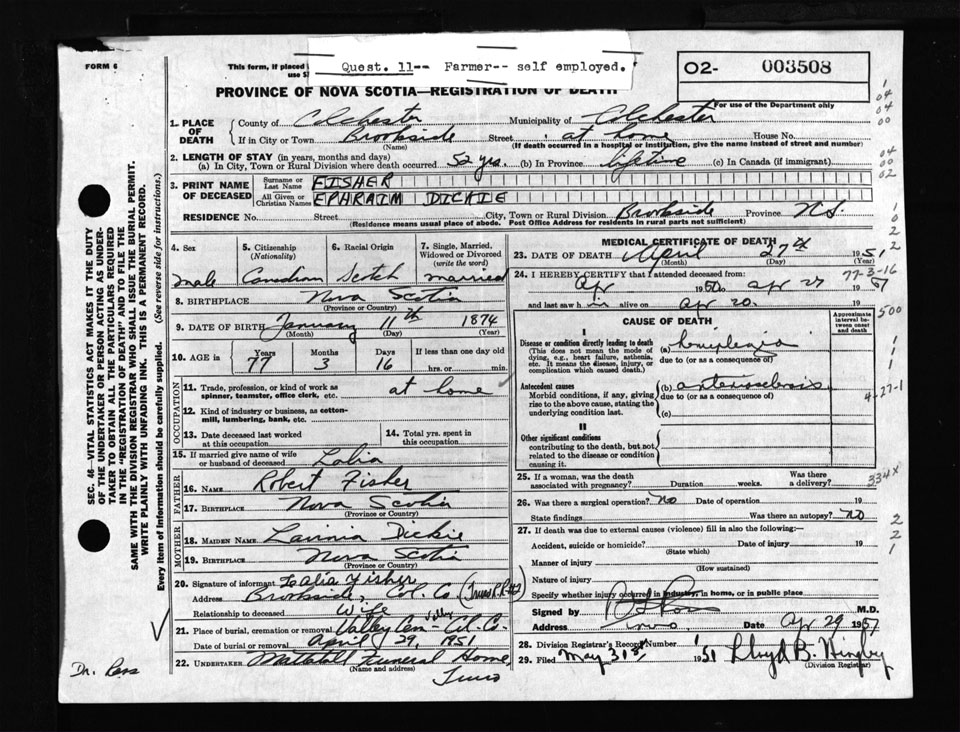 FORM 6
This form, if placed i
use S
Quest. 11-- Farmer-- self employed.
O2- 003508
For use of the Department only
PROVINCE OF NOVA SCOTIA—REGISTRATION OF DEATH
1. PLACE OF DEATH
County of Colchester Municipality of Colchester
If in City or Town Brookside Street at home House No.
(Name) (If death occurred in a hospital or institution, give the name instead of street and number)
2. LENGTH OF STAY (in years, months and days)
(a) In City, Town or Rural Division where death occurred 52 yrs. (b) In Province lifetime (c) In Canada (if immigrant)
3. PRINT NAME OF DECEASED
Surname or Last Name FISHER
All Given or Christian Names EPHRAIM DICKIE
RESIDENCE No. Street City, Town or Rural Division Brookside Province N.S.
(Residence means usual place of abode. Post Office Address for residents in rural parts not sufficient)
4. Sex 5. Citizenship (Nationality) 6. Racial Origin 7. Single, Married, Widowed or Divorced (write the word)
male Canadian Scotch married
8. BIRTHPLACE Nova Scotia
(Province or Country)
9. DATE OF BIRTH January 11th 1874
(Month) (Day) (Year)
10. AGE in Years Months Days If less than one day old
77 3 16 hrs. or min.
OCCUPATION
11. Trade, profession, or kind of work as spinner, teamster, office clerk, etc. at home
12. Kind of industry or business, as cotton-mill, lumbering, bank, etc.
13. Date deceased last worked at this occupation
14. Total yrs. spent in this occupation
15. If married give name of wife or husband of deceased Lalia
FATHER
16. NAME Robert Fisher
17. BIRTHPLACE Nova Scotia
(Province or Country)
MOTHER
18. MAIDEN NAME Lavinia Dickie
19. BIRTHPLACE Nova Scotia
(Province or Country)
20. Signature of informant Lalia Fisher
Address Brookside, Col. Co. (Truro R.R. #2)
Relationship to deceased Wife
21. Place of burial, cremation or removal Valley Cem Valley Col. Co.
Date of burial or removal April 29, 1951
22. UNDERTAKER Mattatall Funeral Home,
(Name and address)
Truro
MEDICAL CERTIFICATE OF DEATH
23. DATE OF DEATH April 27th 1951
(Month) (Day)
77-3-16
24. I HEREBY CERTIFY that I attended deceased from:
Apr 19 to Apr 27 19
and last saw h i alive on apr 20. 19
CAUSE OF DEATH
Approximate interval between onset and death
I
Disease or condition directly leading to death
(This does not mean the mode of dying, e.g., heart failure, asthenia, etc. It means the disease, injury, or complication which caused death.)
(a) hemiplegia
due to (or as a consequence of)
Antecedent causes
Morbid conditions, if any, giving rise to the above cause, stating the underlying condition last.
(b) arteriosclerosis
due to (or as a consequence of)
(c)
II
Other significant conditions contributing to the death, but not related to the disease or condition causing it.
25. If a woman, was the death associated with pregnancy? Duration weeks. Was there a delivery?
26. Was there a surgical operation? no Date of operation 19
State findings Was there an autopsy? no
27. If death was due to external causes (violence) fill in also the following:—
Accident, suicide or homicide? Date of injury 19
(State which)
Manner of injury
(How sustained)
Nature of injury
Specify whether injury occurred in industry, in home, or in public place
Signed by Ross M.D.
Address Truro. Date Apr 29 1951
28. Division Registrar's Record Number 1
29. Filed May 31st 1951 Lloyd B.
(Division Registrar)
500
4-27-1
334X
Dr. Ross
SEC. 46—VITAL STATISTICS ACT MAKES IT THE DUTY
OF THE UNDERTAKER OR PERSON ACTING AS UNDER-
TAKER TO OBTAIN ALL THE PARTICULARS REQUIRED
IN THE "REGISTRATION OF DEATH" AND TO FILE THE
SAME WITH THE DIVISION REGISTRAR WHO SHALL ISSUE THE BURIAL PERMIT.
WRITE PLAINLY WITH UNFADING INK. THIS IS A PERMANENT RECORD.
Every item of Information should be carefully supplied. (See reverse side for instructions.)